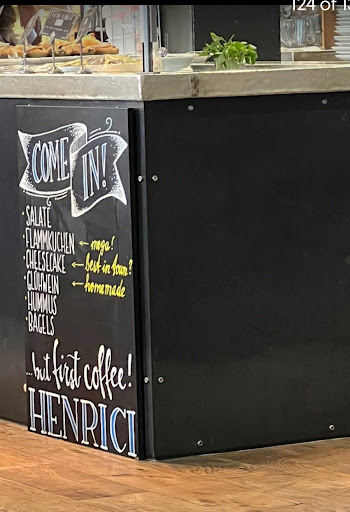 124 of 13
COME IN!
· SALATE
· FLAMMKUCHEN ← mega!
· CHEESECAKE ← Best in town?
· GLÜHWEIN ← homemade
· HUMMUS
· BAGELS
...but first coffee!
HENRICI